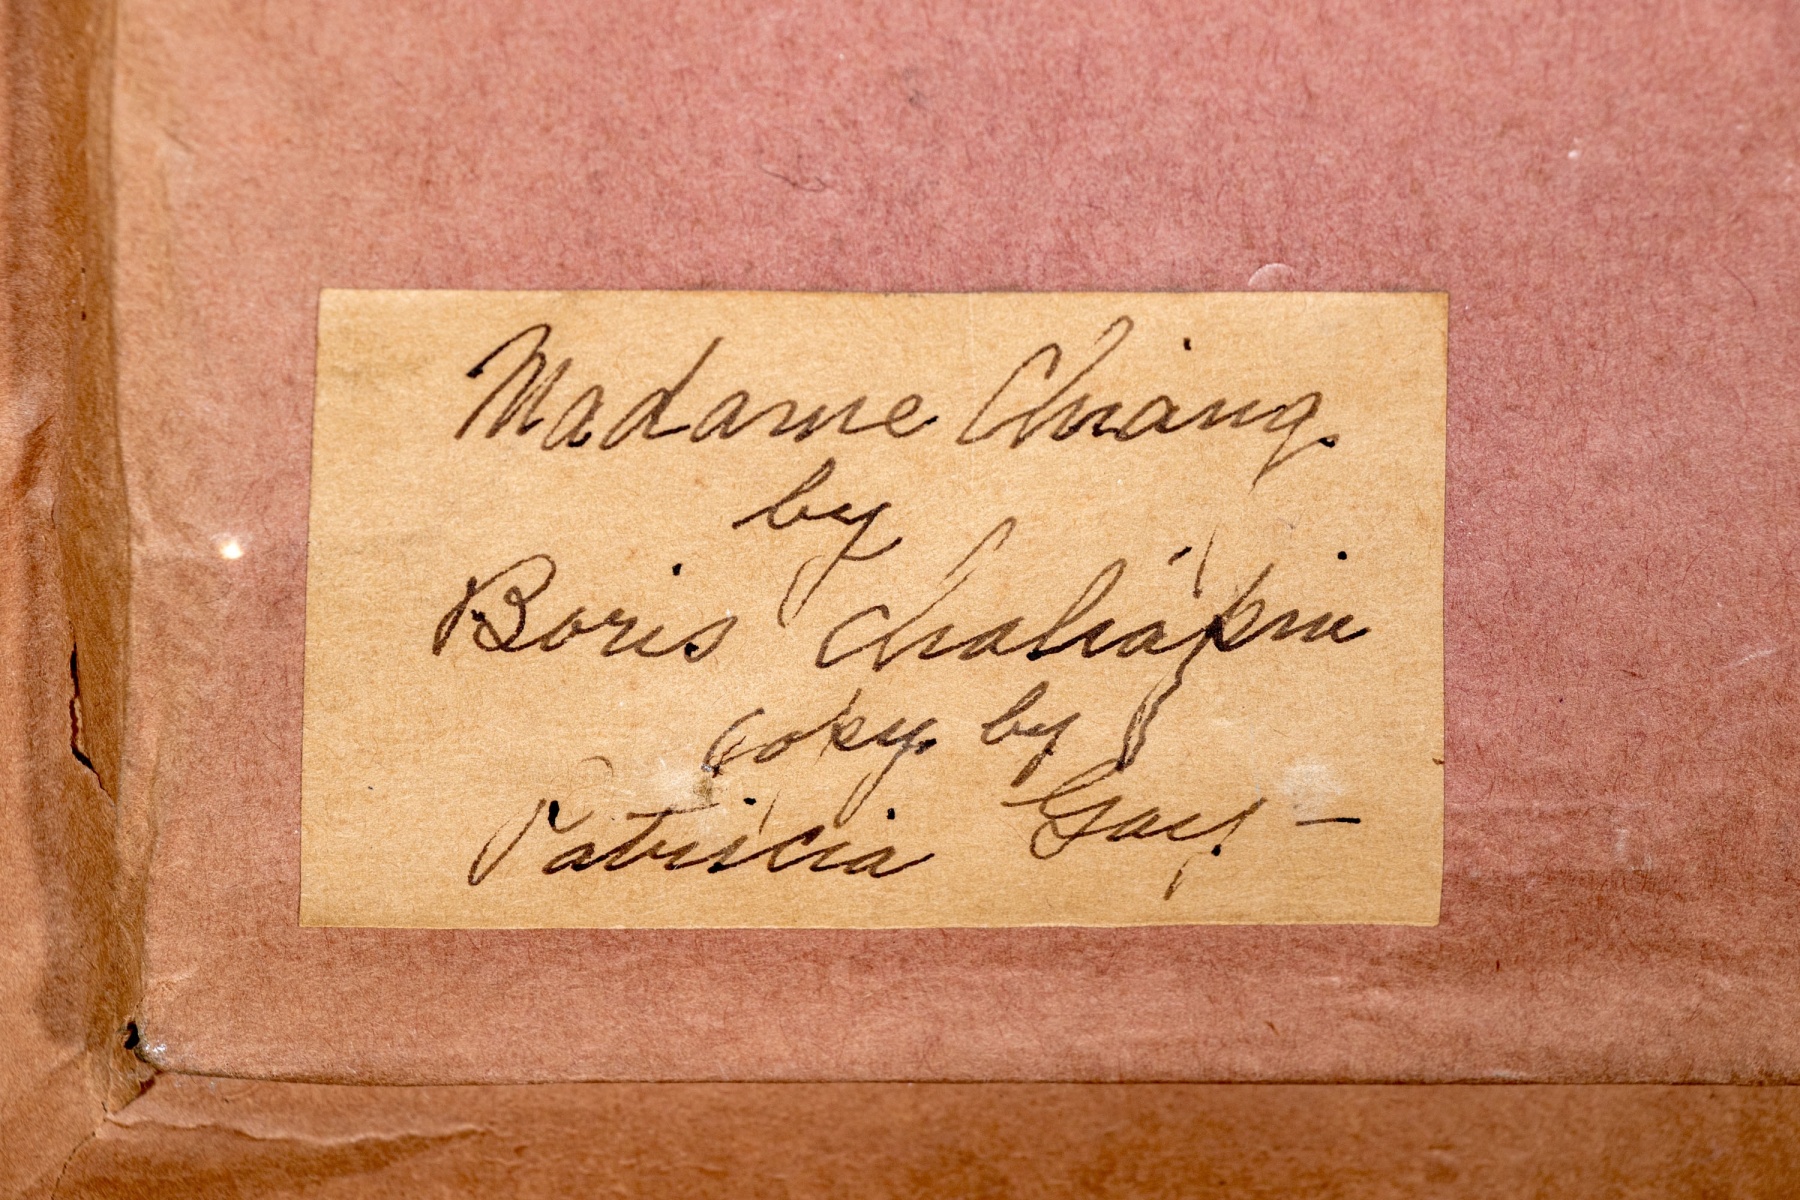 Madame Chiang
by
Boris Chaliapin
copy by
Patriscia Gay –